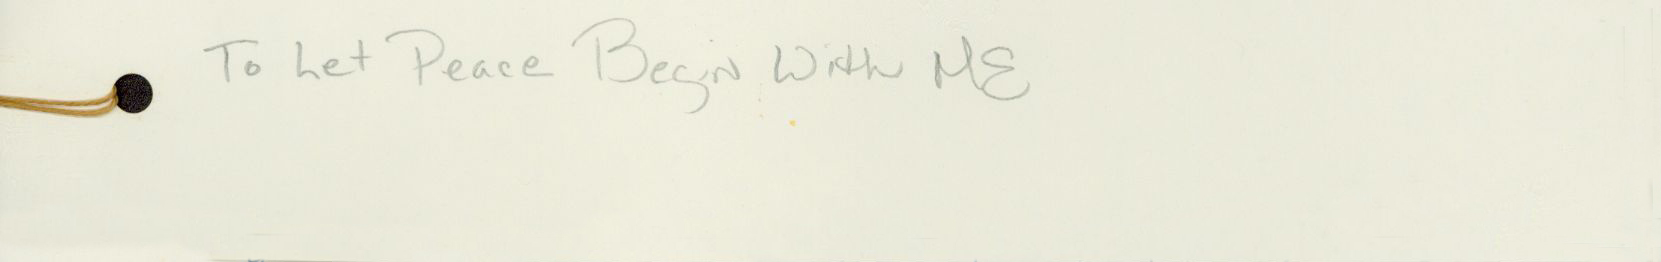 To Let Peace Begin With ME